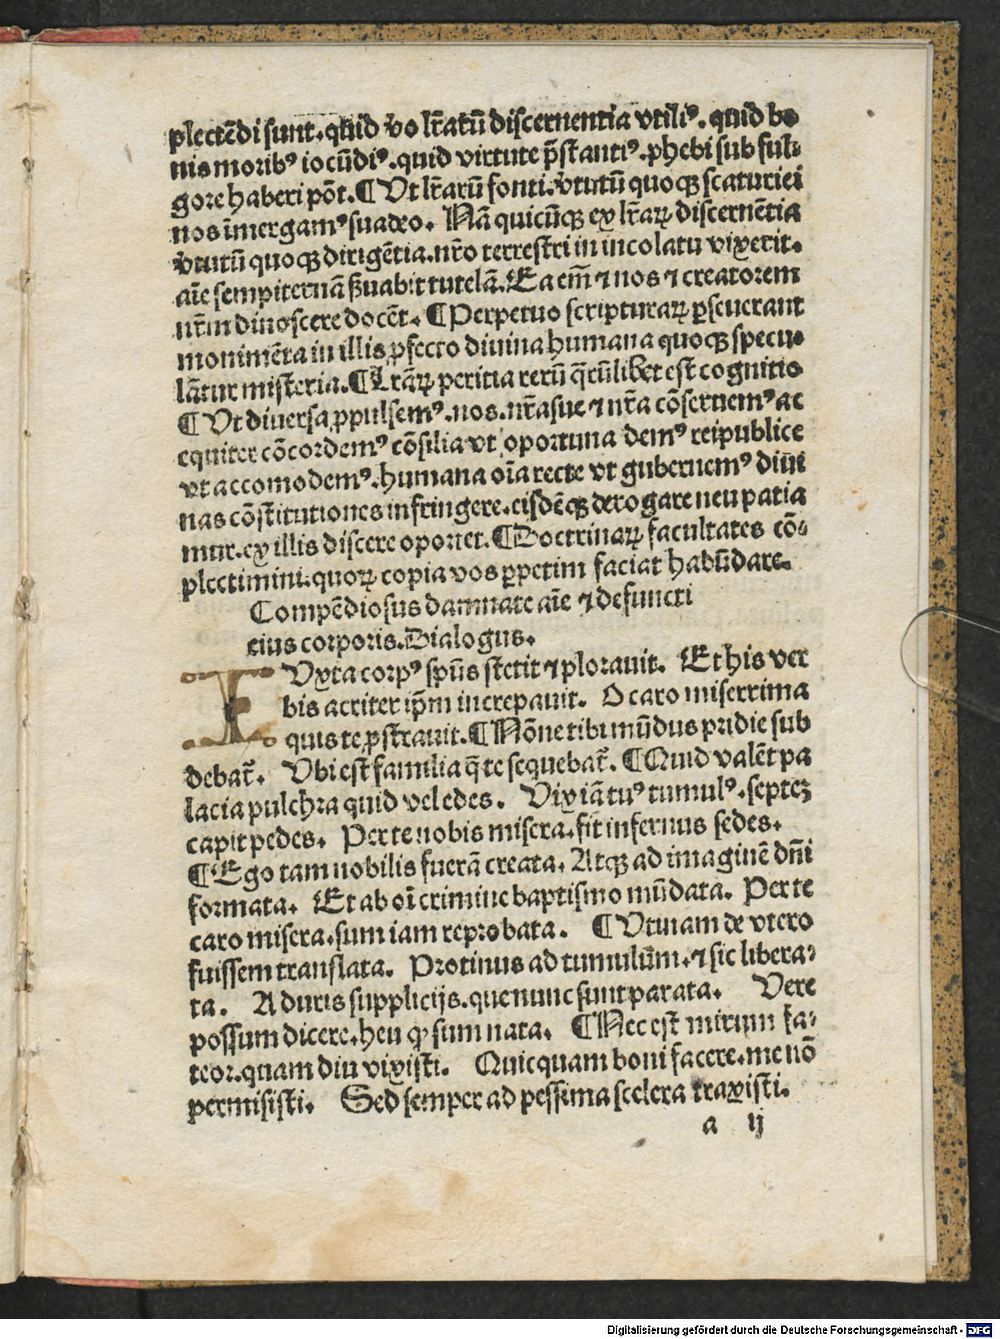 plectēdi sunt. quid vo lr̄atū discernentia vtiliꝰ. quid bo
nis moribꝰ iocūdiꝰ. quid virtute p̄stantiꝰ. phebi sub ful⸗
gore haberi pōt. ¶ Vt lr̄arū fonti. v̄tutū quoqꝫ scaturiei
nos īmergamꝰ suadeo. Nā quicūqꝫ ex lr̄aꝝ discernētia
v̄tutū quoqꝫ dirigētia. nr̄o terrestri in incolatu vixerit.
aīe sempiternā ẜuabit tutelā. Ea em̄ ⁊ nos ⁊ creatorem
nr̄m dinoscere docēt. ¶ Perpetuo scripturaꝝ ꝑseuerant
monimēta in illis ꝓfecto diuina humana quoqꝫ specu⸗
lātur misteria. ¶ Lr̄aꝝ peritia rerū q̄rūlibet est cognitio
¶ Vt diuersa ꝓpulsemꝰ. nos. nr̄asue ⁊ nr̄a cōseruemꝰ ac
equiter cōcordemꝰ cōsilia vt oportuna demꝰ reipublice
vt accomodemꝰ. humana oīa recte vt gubernemꝰ diui
nas cōstitutiones infringere. eisdēqꝫ derogare neu patia
mur. ex illis discere oportet. ¶ Doctrinaꝝ facultates cō⸗
plectimini. quoꝝ copia vos ꝑpetim faciat habūdare.
Compēdiosus damnate aīe ⁊ defuncti
eius corporis. Dialogus.
IVxta corpꝰ spūs stetit ⁊ plorauit. Et his ver
bis acriter ip̄m increpauit. O caro miserrima
quis te ꝓstrauit. ¶ Nōne tibi mūdus pridie sub
debat̄. Vbi est familia q̄ te sequebat̄. ¶ Quid valēt pa
lacia pulchra quid vel edes. Vix iā tuꝰ tumulꝰ. septeꝫ
capit pedes. Per te nobis misera. fit infernus sedes.
¶ Ego tam nobilis fuerā creata. Atqꝫ ad imaginē dn̄i
formata. Et ab oī crimine baptismo mūdata. Per te
caro misera. sum iam reprobata. ¶ Vtinam de vtero
fuissem translata. Protinus ad tumulum. ⁊ sic libera⸗
ta. A duris supplicijs. que nunc sunt parata. Vere
possum dicere. heu ꝙ sum nata. ¶ Nec est mirum fa⸗
teor. quam diu vixisti. Quicquam boni facere. me nō
permisisti. Sed semper ad pessima scelera traxisti.
a ij
Digitalisierung gefördert durch die Deutsche Forschungsgemeinschaft - DFG